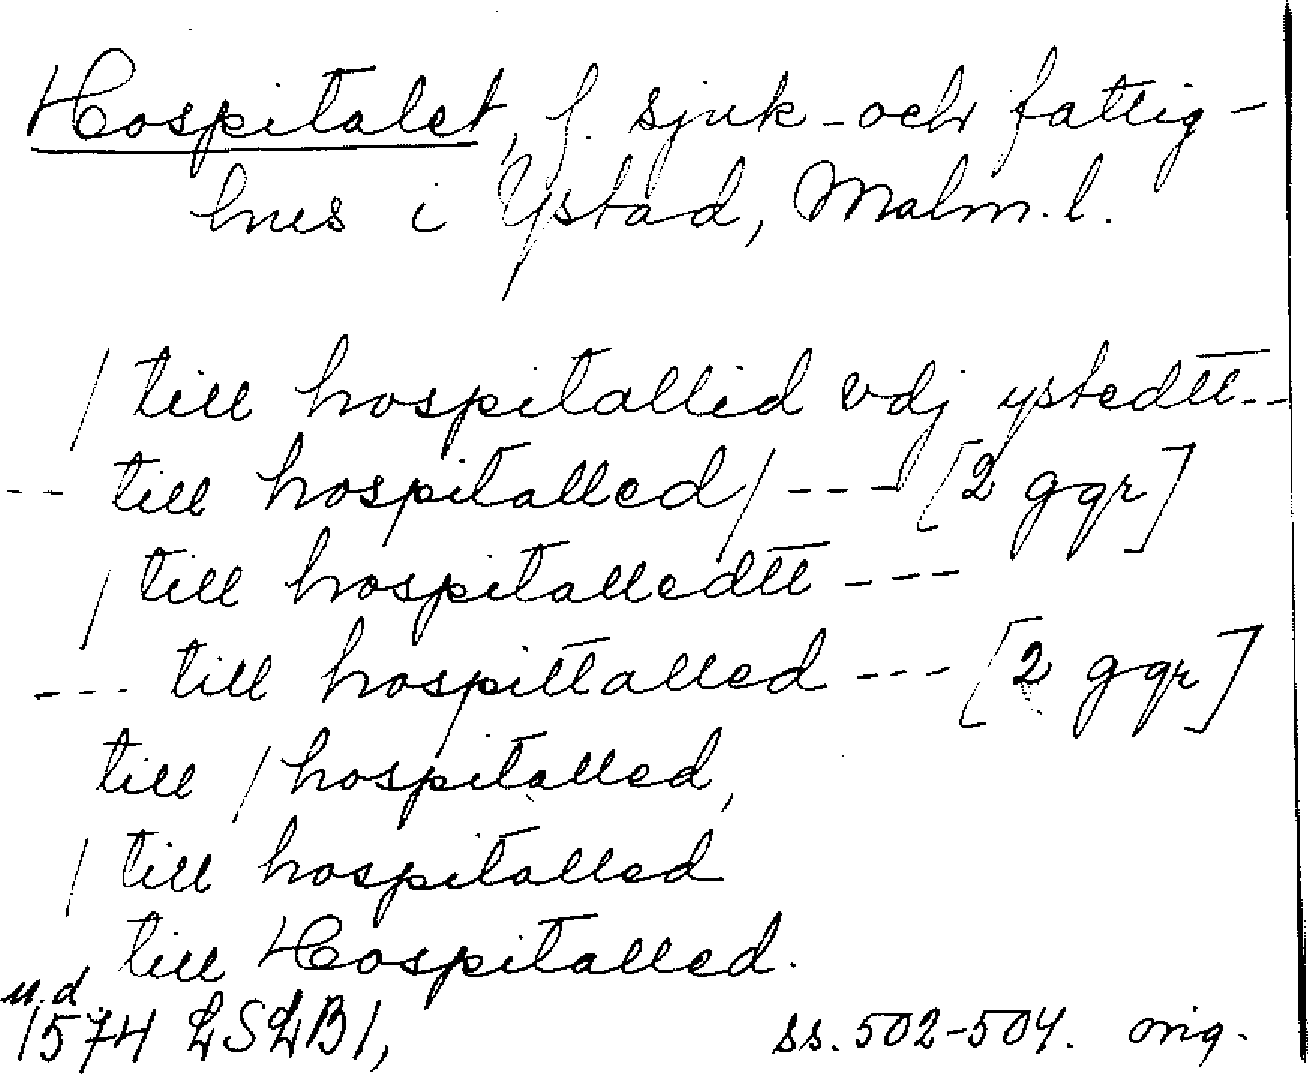 Hospitalet, f. sjuk- och fattig-
hus i Ystad, Malm. l.
/ till hospitallid vdj ystedtt---
-- till hospitalled / --- [2 ggr]
/ till hospitalledtt ---
--- till hospittalled --- [2 ggr]
till / hospitalled,
/ till hospitalled
till Hospitalled.
u.d.
1574 LSLB1, ss. 502-504. orig.